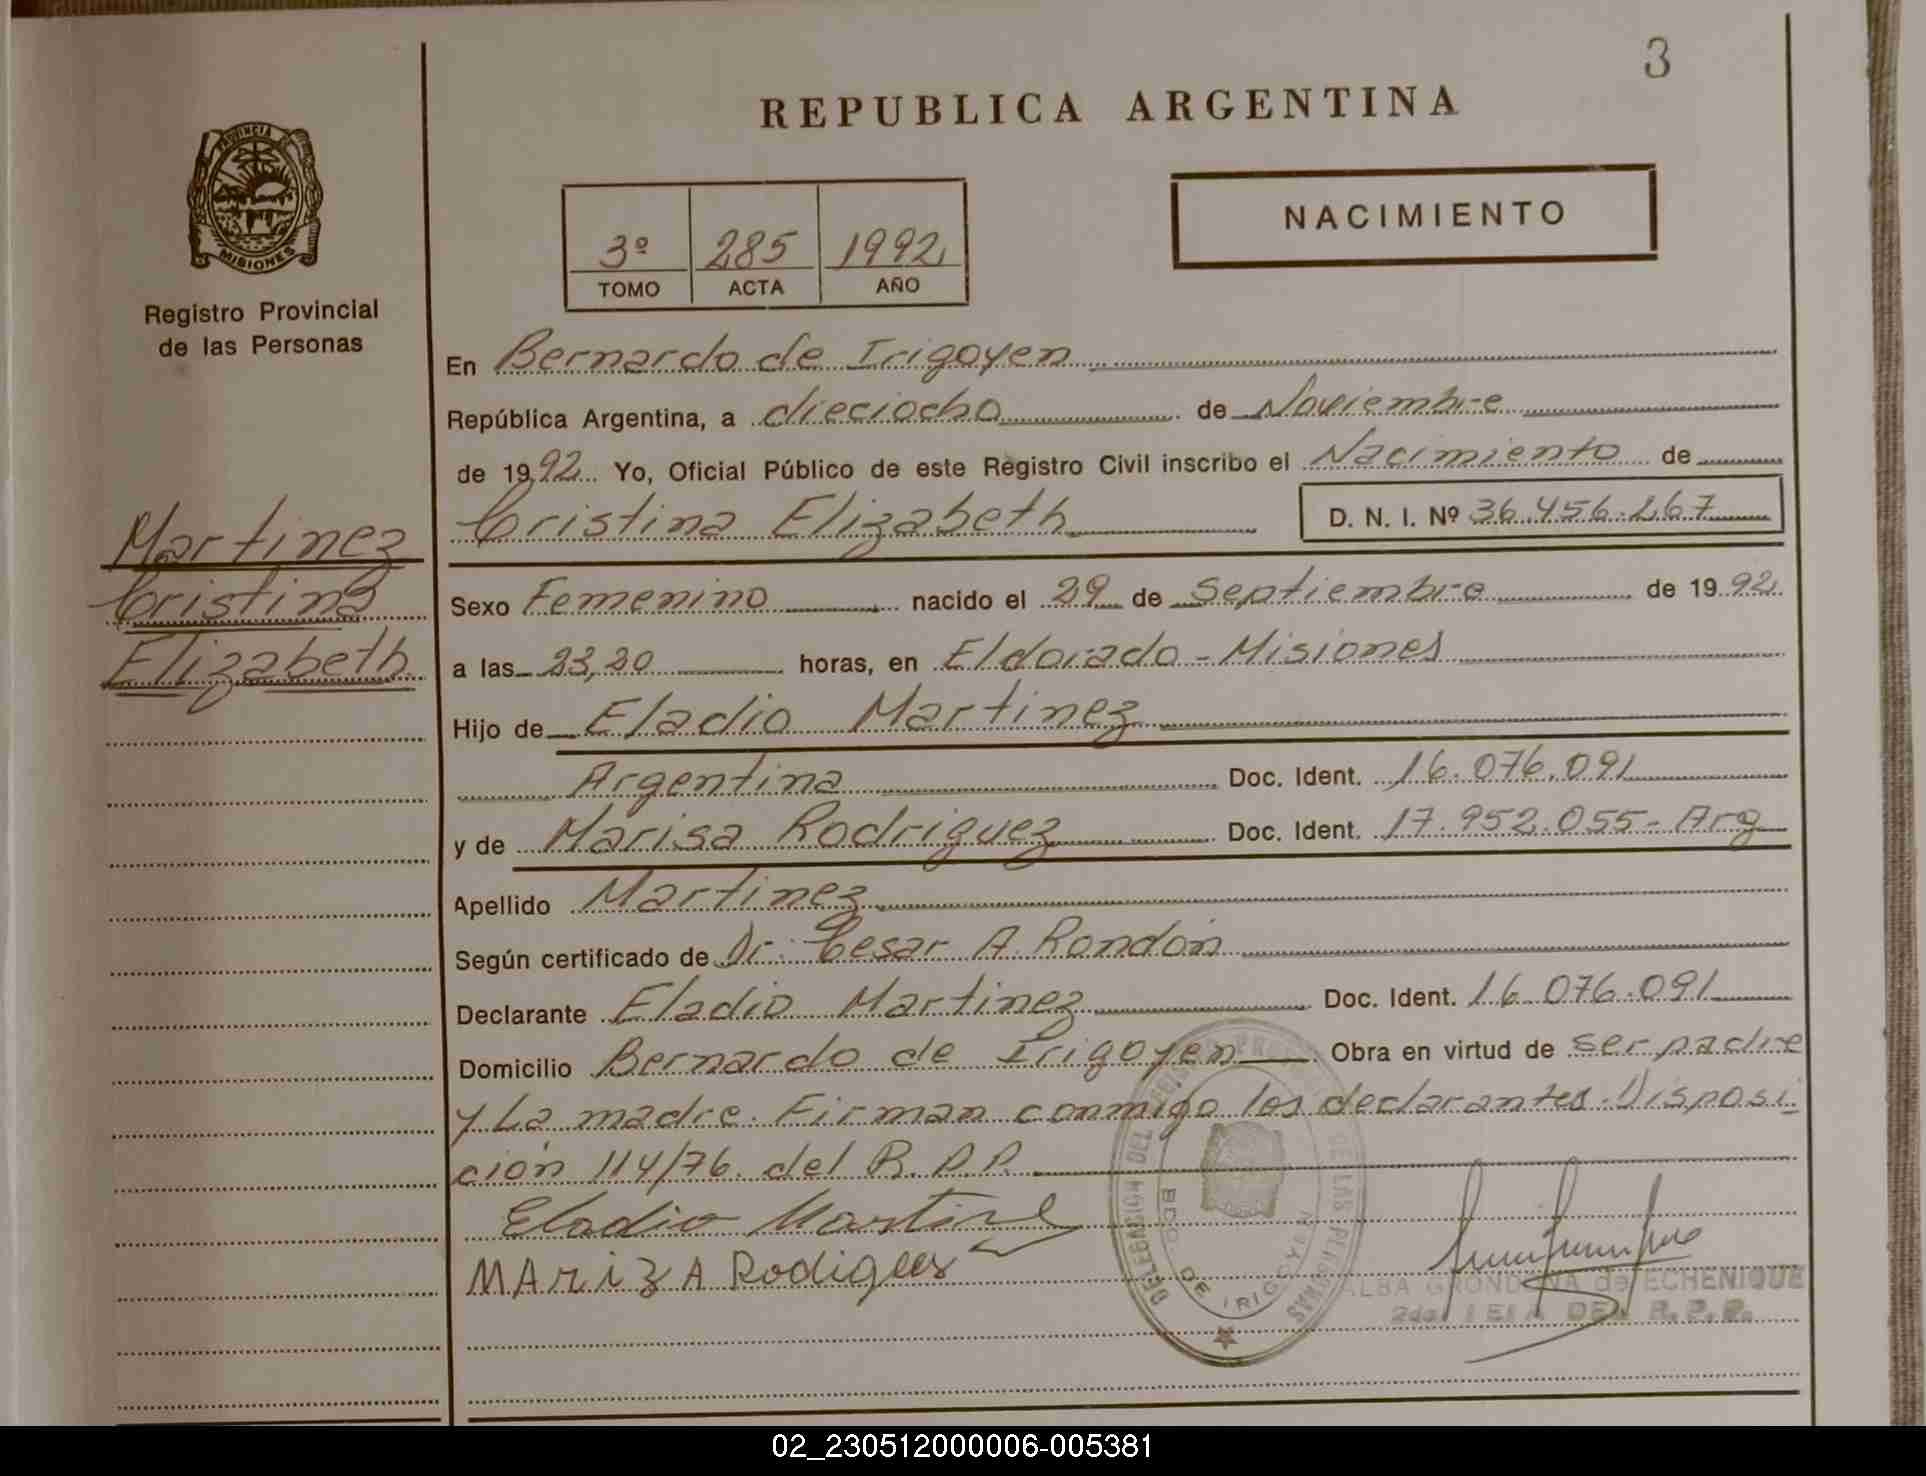 3
REPUBLICA ARGENTINA
PROVINCIA DE
MISIONES
Registro Provincial
de las Personas
3º 285 1992
TOMO ACTA AÑO
NACIMIENTO
En Bernardo de Irigoyen
República Argentina, a dieciocho de Noviembre
de 1992 Yo, Oficial Público de este Registro Civil inscribo el Nacimiento de
Cristina Elizabeth D. N. I. Nº 36.456.267
Martinez
Cristina
Elizabeth
Sexo Femenino nacido el 29 de Septiembre de 1992
a las 23,20 horas, en Eldorado - Misiones
Hijo de Eladio Martinez
Argentina Doc. Ident. 16.076.091
y de Marisa Rodriguez Doc. Ident. 17.952.055 - Arg
Apellido Martinez
Según certificado de Dr. Cesar A. Rondón
Declarante Eladio Martinez Doc. Ident. 16.076.091
Domicilio Bernardo de Irigoyen Obra en virtud de ser padre
y La madre. Firman conmigo los declarantes. Disposi-
ción 114/76. del R.P.P.
Eladio Martinez
MArizA Rodigues
DELEGACION DEL REGISTRO PROVINCIAL DE LAS PERSONAS
BDO. DE IRIGOYEN
ALBA GRONDONA de ECHENIQUE
2da. DEL R.P.P.
02_230512000006-005381